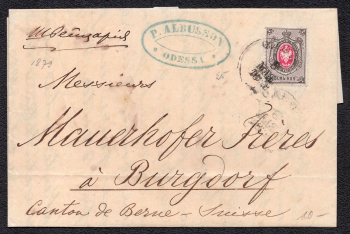 въ Швейцарію
P. ALBUSSON
ODESSA
1879
Messieurs
Mauerhofer Frères
à Burgdorf
Canton de Berne - Suisse
10-